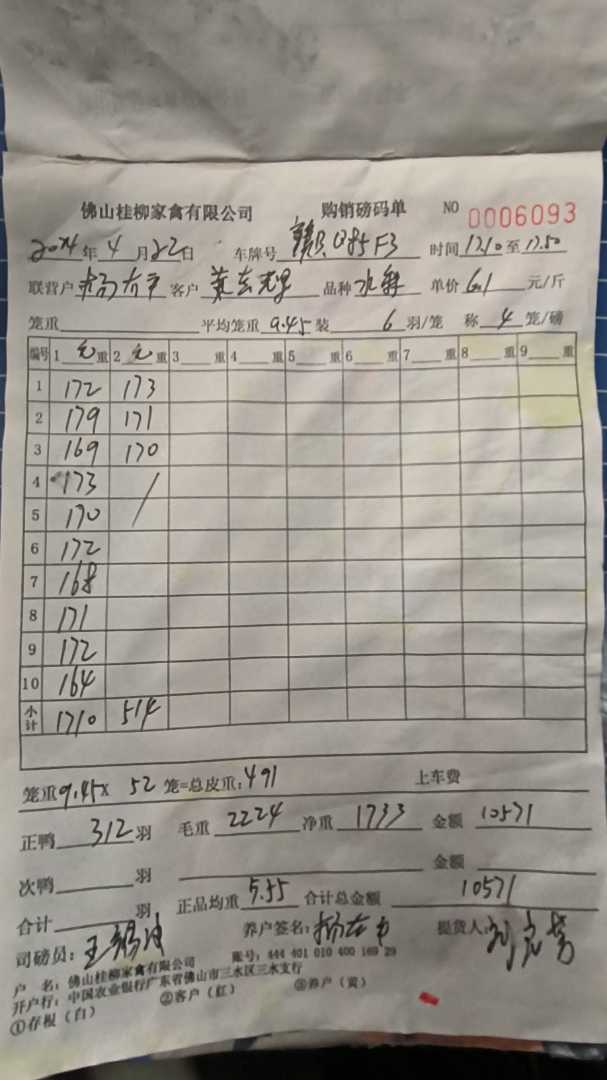 佛山桂柳家禽有限公司 购销磅码单 NO 0006093
2024年4月22日 车牌号 赣B Q85F3 时间 1710至17.50
联营户 客户 品种 水鸭 单价 6.1 元/斤
笼重 平均笼重 9.45 装 6 羽/笼 称 4 笼/磅
编号 1 毛重 2 毛重 3 重 4 重 5 重 6 重 7 重 8 重 9 重
1 172 173
2 179 171
3 169 170
4 173 /
5 170
6 172
7 168
8 171
9 172
10 164
小计 1710 514
笼重 9.45× 52 笼=总皮重: 491 上车费
正鸭 312 羽 毛重 2224 净重 1733 金额 10571
次鸭 羽 金额
合计 羽 正品均重 5.55 合计总金额 10571
司磅员: 王 养户签名: 提货人:
户 名: 佛山桂柳家禽有限公司 账号: 444 401 010 400 169 29
开户行: 中国农业银行广东省佛山市三水区三水支行
①存根（白） ②客户（红） ③养户（黄）